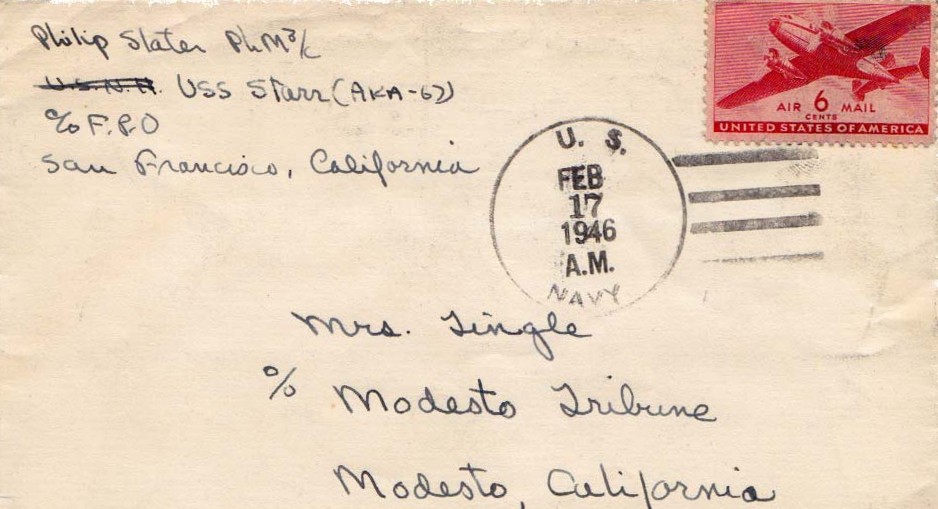 Philip Slater PhM3/c
U.S.N.R. USS Starr (AKA-67)
c/o F.P.O
San Francisco, California
AIR 6 MAIL
CENTS
UNITED STATES OF AMERICA
U. S.
FEB
17
1946
A.M.
NAVY
Mrs. Tingle
c/o Modesto Tribune
Modesto, California